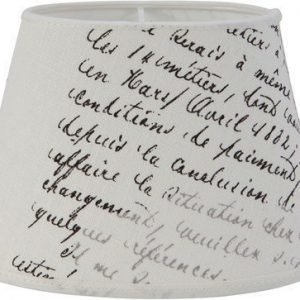 je Serais à même
les 14 métiers, dont
en Mars/Avril 1882;
conditions de paiement
depuis la conclusion de
affaire la situation chex
changement, veuillez
quelques références.
Il me s.